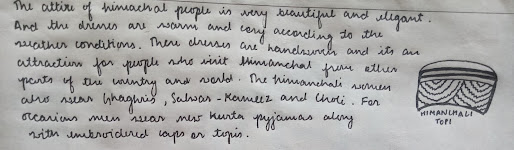 The attire of himachal people is very beautiful and elegant.
And the dresses are warm and cosy according to the
weather conditions. These dresses are handwoven and its an
attraction for people who visit Himanchal from other
parts of the country and world. The himanchali women
also wear Ghaghris, Salwar-Kameez and Choli. For
occasions men wear new Kurta pyjamas along
with embroidered caps or topis.
HIMANCHALI
TOPI